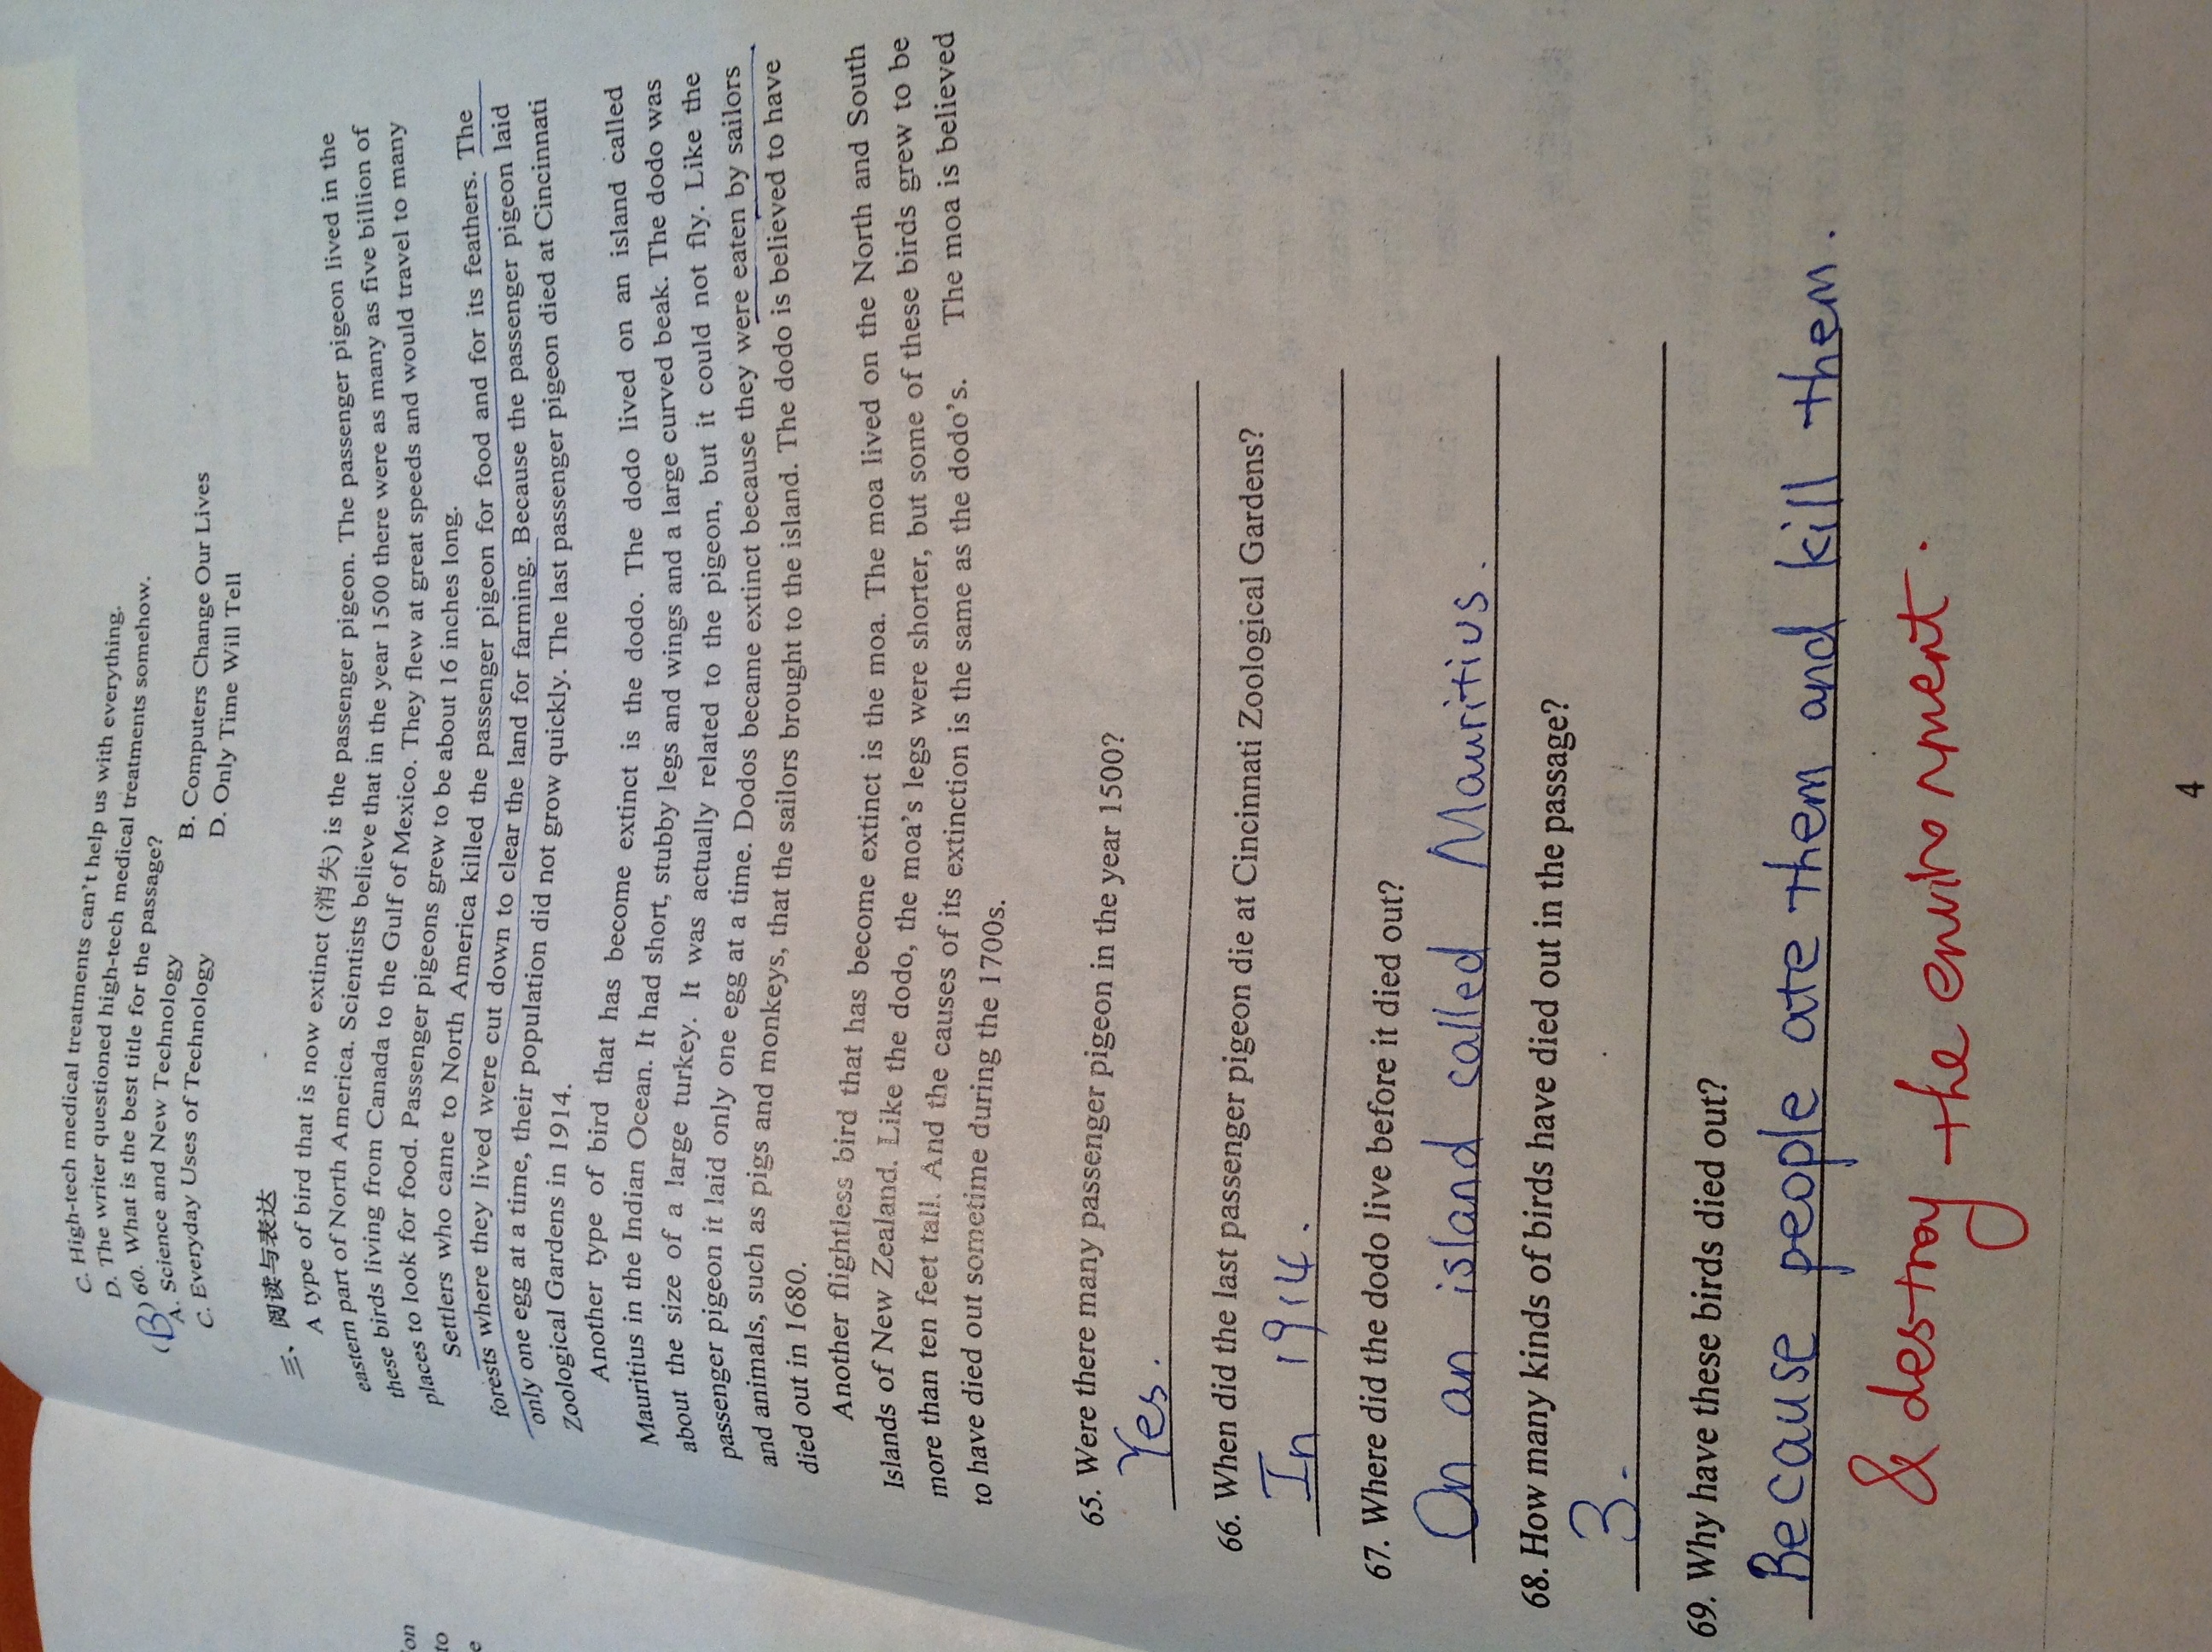 C. High-tech medical treatments can't help us with everything.
D. The writer questioned high-tech medical treatments somehow.
(B) 60. What is the best title for the passage?
A. Science and New Technology B. Computers Change Our Lives
C. Everyday Uses of Technology D. Only Time Will Tell
三、阅读与表达
A type of bird that is now extinct (消失) is the passenger pigeon. The passenger pigeon lived in the
eastern part of North America. Scientists believe that in the year 1500 there were as many as five billion of
these birds living from Canada to the Gulf of Mexico. They flew at great speeds and would travel to many
places to look for food. Passenger pigeons grew to be about 16 inches long.
Settlers who came to North America killed the passenger pigeon for food and for its feathers. The
forests where they lived were cut down to clear the land for farming. Because the passenger pigeon laid
only one egg at a time, their population did not grow quickly. The last passenger pigeon died at Cincinnati
Zoological Gardens in 1914.
Another type of bird that has become extinct is the dodo. The dodo lived on an island called
Mauritius in the Indian Ocean. It had short, stubby legs and wings and a large curved beak. The dodo was
about the size of a large turkey. It was actually related to the pigeon, but it could not fly. Like the
passenger pigeon it laid only one egg at a time. Dodos became extinct because they were eaten by sailors
and animals, such as pigs and monkeys, that the sailors brought to the island. The dodo is believed to have
died out in 1680.
Another flightless bird that has become extinct is the moa. The moa lived on the North and South
Islands of New Zealand. Like the dodo, the moa's legs were shorter, but some of these birds grew to be
more than ten feet tall. And the causes of its extinction is the same as the dodo's. The moa is believed
to have died out sometime during the 1700s.
65. Were there many passenger pigeon in the year 1500?
Yes.
66. When did the last passenger pigeon die at Cincinnati Zoological Gardens?
In 1914.
67. Where did the dodo live before it died out?
On an island called Mauritius.
68. How many kinds of birds have died out in the passage?
3.
69. Why have these birds died out?
Because people ate them and kill them.
& destroy the environment.
4
on
to
e